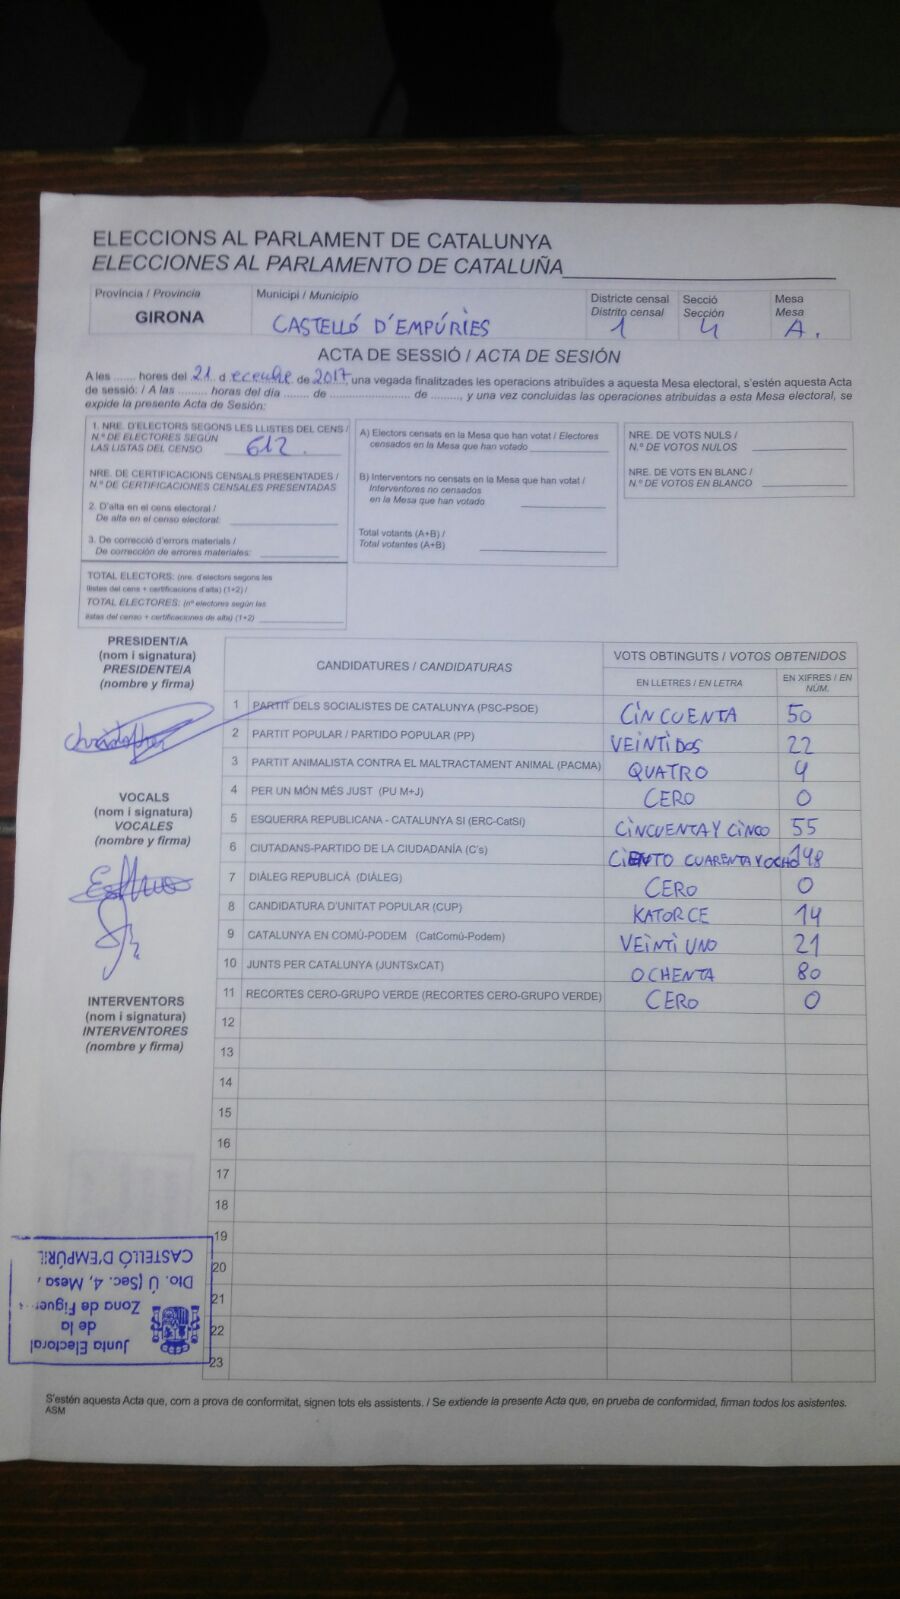 ELECCIONS AL PARLAMENT DE CATALUNYA
ELECCIONES AL PARLAMENTO DE CATALUÑA
Província / Provincia
GIRONA
Municipi / Municipio
CASTELLÓ D'EMPÚRIES
Districte censal
Distrito censal
1
Secció
Sección
4
Mesa
Mesa
A.
ACTA DE SESSIÓ / ACTA DE SESIÓN
A les ....... hores del 21 d ecembre de 2017, una vegada finalitzades les operacions atribuïdes a aquesta Mesa electoral, s'estén aquesta Acta
de sessió: / A las ......... horas del día ....... de ....................... de ........, y una vez concluidas las operaciones atribuidas a esta Mesa electoral, se
expide la presente Acta de Sesión:
1. NRE. D'ELECTORS SEGONS LES LLISTES DEL CENS /
N.º DE ELECTORES SEGÚN
LAS LISTAS DEL CENSO 612.
NRE. DE CERTIFICACIONS CENSALS PRESENTADES /
N.º DE CERTIFICACIONES CENSALES PRESENTADAS
2. D'alta en el cens electoral /
De alta en el censo electoral:
3. De correcció d'errors materials /
De corrección de errores materiales:
TOTAL ELECTORS: (nre. d'electors segons les
llistes del cens + certificacions d'alta) (1+2) /
TOTAL ELECTORES: (nº electores según las
listas del censo + certificaciones de alta) (1+2)
A) Electors censats en la Mesa que han votat / Electores
censados en la Mesa que han votado
B) Interventors no censats en la Mesa que han votat /
Interventores no censados
en la Mesa que han votado
Total votants (A+B) /
Total votantes (A+B)
NRE. DE VOTS NULS /
N.º DE VOTOS NULOS
NRE. DE VOTS EN BLANC /
N.º DE VOTOS EN BLANCO
PRESIDENT/A
(nom i signatura)
PRESIDENTE/A
(nombre y firma)
VOCALS
(nom i signatura)
VOCALES
(nombre y firma)
INTERVENTORS
(nom i signatura)
INTERVENTORES
(nombre y firma)
CANDIDATURES / CANDIDATURAS
VOTS OBTINGUTS / VOTOS OBTENIDOS
EN LLETRES / EN LETRA
EN XIFRES / EN NÚM.
1 PARTIT DELS SOCIALISTES DE CATALUNYA (PSC-PSOE) CINCUENTA 50
2 PARTIT POPULAR / PARTIDO POPULAR (PP) VEINTIDOS 22
3 PARTIT ANIMALISTA CONTRA EL MALTRACTAMENT ANIMAL (PACMA) QUATRO 4
4 PER UN MÓN MÉS JUST (PU M+J) CERO 0
5 ESQUERRA REPUBLICANA - CATALUNYA SÍ (ERC-CatSí) CINCUENTA Y CINCO 55
6 CIUTADANS-PARTIDO DE LA CIUDADANÍA (C's) CIENTO CUARENTA Y OCHO 148
7 DIÀLEG REPUBLICÀ (DIÀLEG) CERO 0
8 CANDIDATURA D'UNITAT POPULAR (CUP) KATORCE 14
9 CATALUNYA EN COMÚ-PODEM (CatComú-Podem) VEINTI UNO 21
10 JUNTS PER CATALUNYA (JUNTSxCAT) OCHENTA 80
11 RECORTES CERO-GRUPO VERDE (RECORTES CERO-GRUPO VERDE) CERO 0
12
13
14
15
16
17
18
19
20
21
22
23
Junta Electoral
de la
Zona de Figuer
Dto. Ú (Sec. 4, Mesa
CASTELLÓ D'EMPÚRI
S'estén aquesta Acta que, com a prova de conformitat, signen tots els assistents. / Se extiende la presente Acta que, en prueba de conformidad, firman todos los asistentes.
ASM